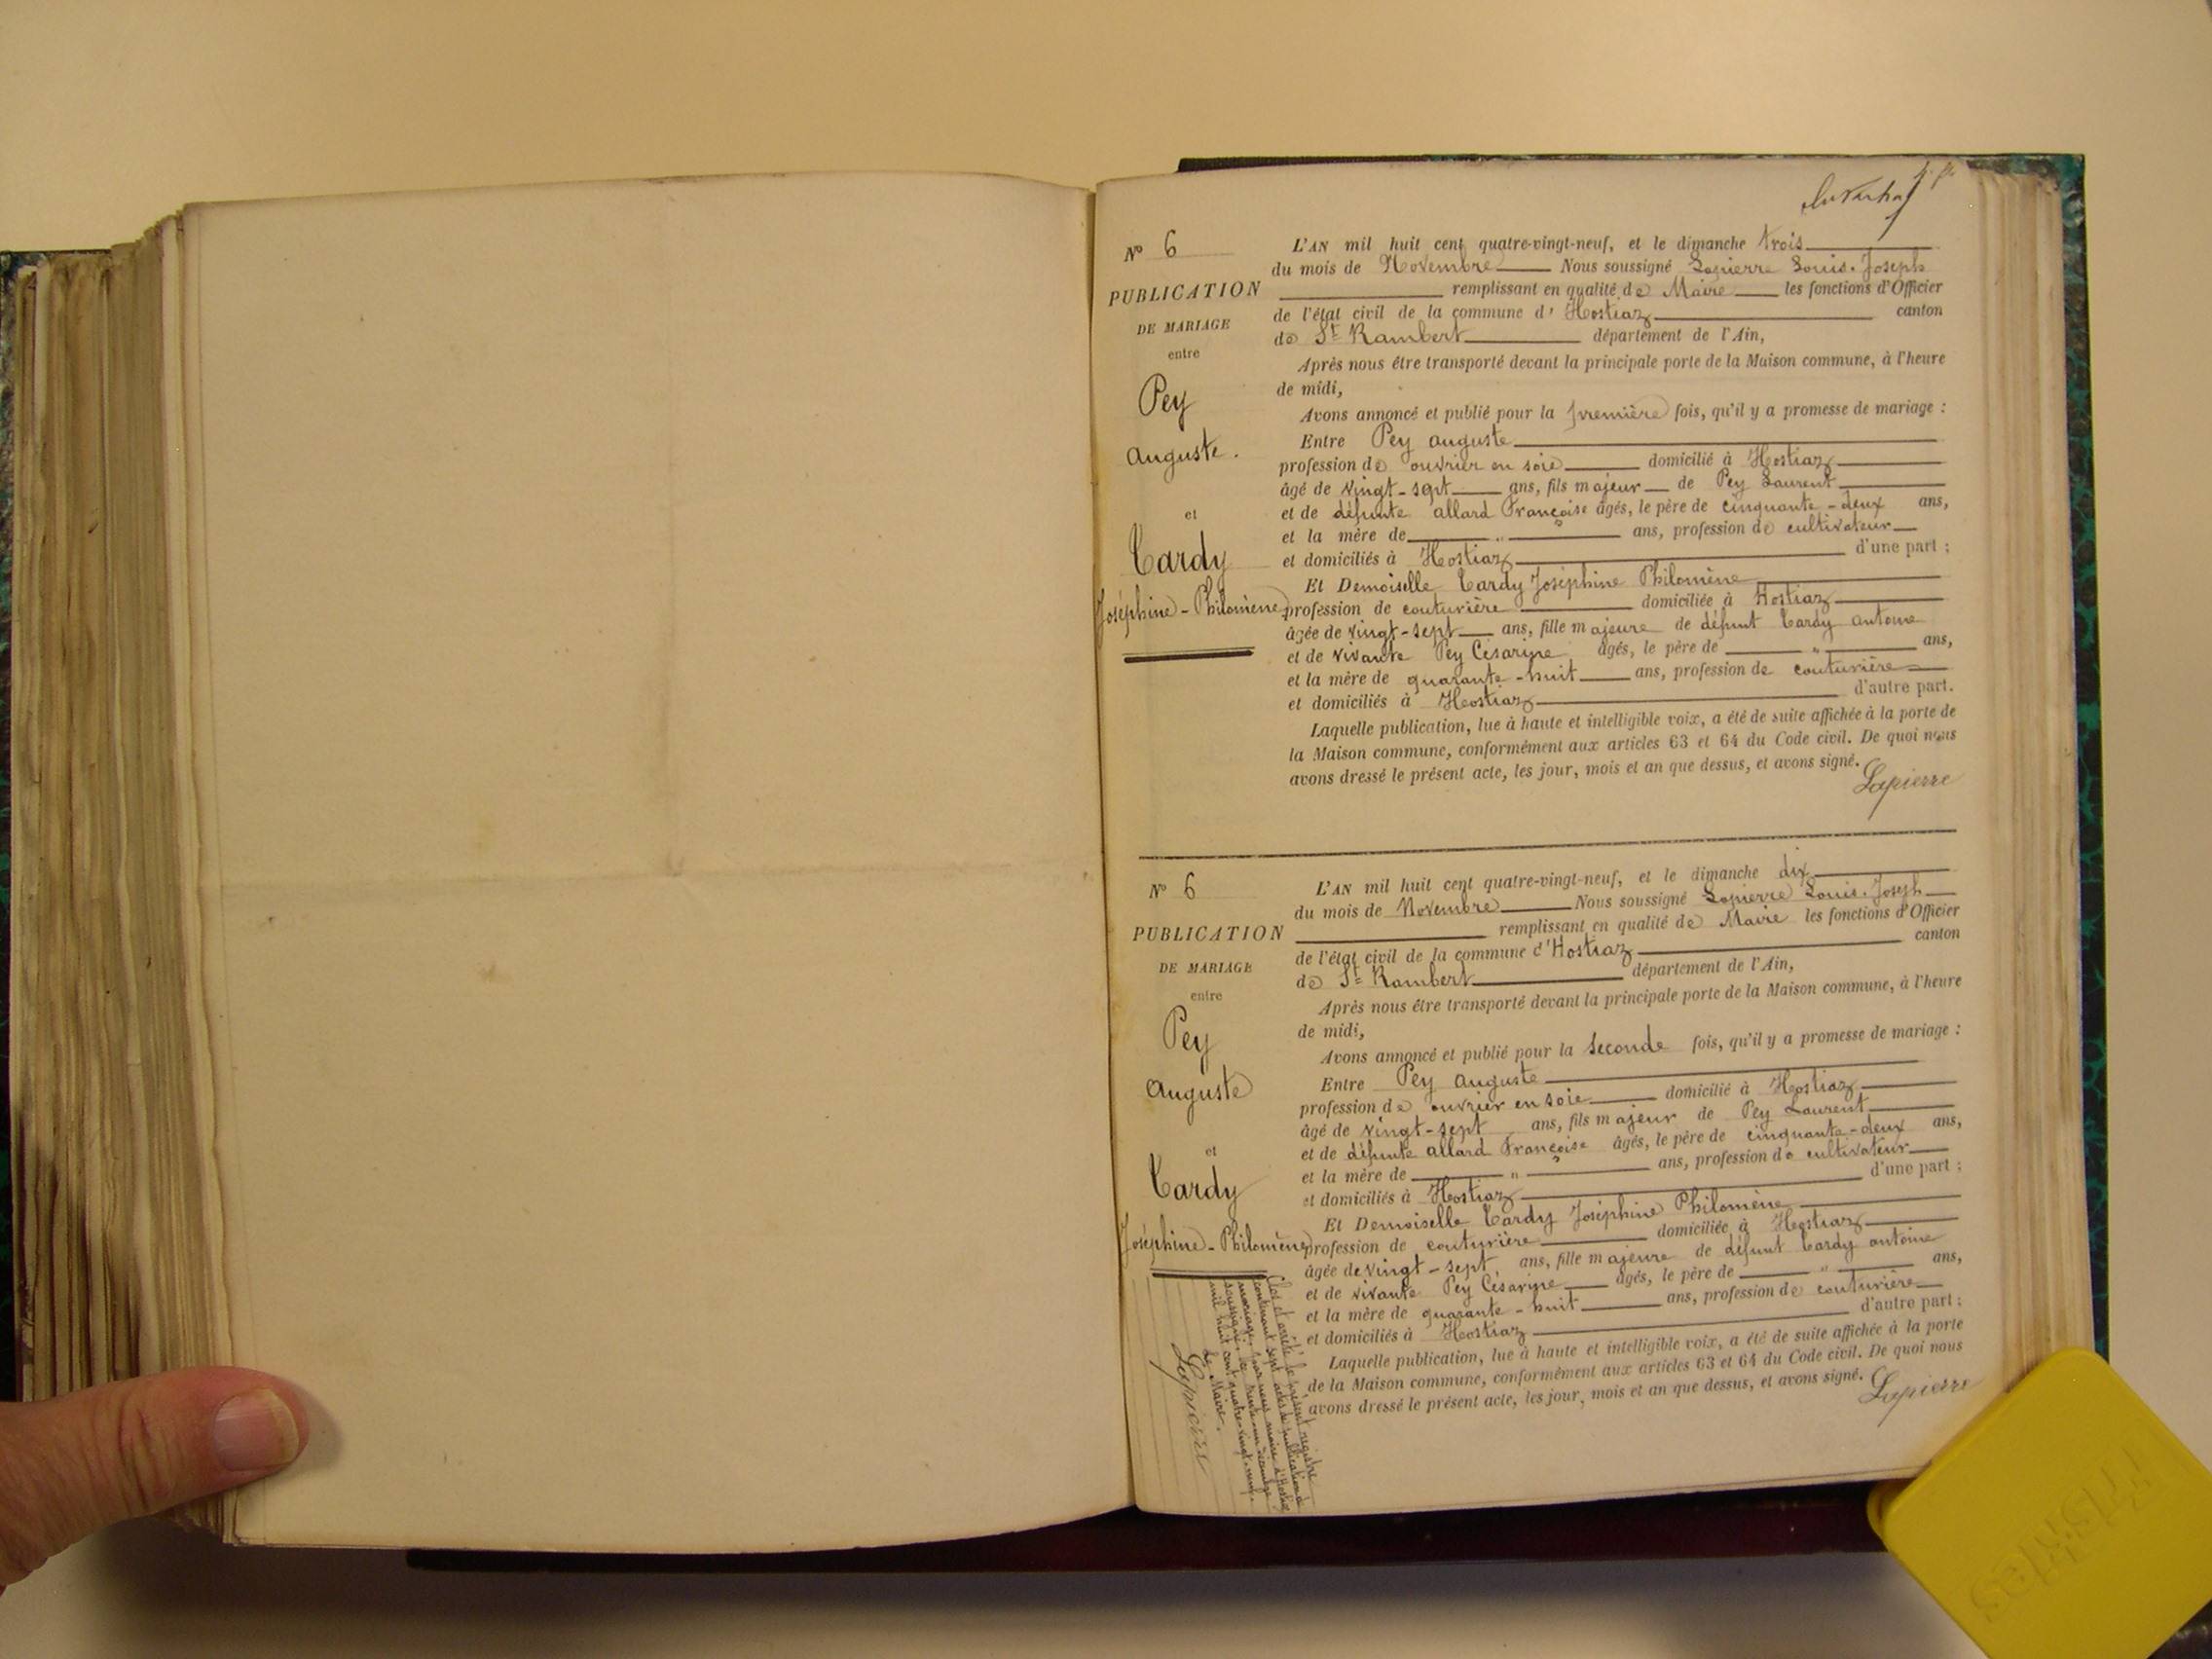 N° 6
PUBLICATION
DE MARIAGE
entre
Pey
Auguste.
et
Cardy
Joséphine-Philomène
L'AN mil huit cent quatre-vingt-neuf, et le dimanche trois
du mois de Novembre Nous soussigné Lapierre Louis-Joseph
remplissant en qualité de Maire les fonctions d'Officier
de l'état civil de la commune d'Hostiaz canton
de St Rambert département de l'Ain,
Après nous être transporté devant la principale porte de la Maison commune, à l'heure
de midi,
Avons annoncé et publié pour la première fois, qu'il y a promesse de mariage :
Entre Pey Auguste
profession de ouvrier en soie domicilié à Hostiaz
âgé de vingt-sept ans, fils majeur de Pey Laurent
et de défunte Allard Françoise âgés, le père de cinquante-deux ans,
et la mère de " ans, profession de cultivateur
et domiciliés à Hostiaz d'une part ;
Et Demoiselle Cardy Joséphine Philomène
profession de couturière domiciliée à Hostiaz
âgée de vingt-sept ans, fille majeure de défunt Cardy Antoine
et de vivante Pey Césarine âgés, le père de " ans,
et la mère de quarante-huit ans, profession de couturière
et domiciliés à Hostiaz d'autre part.
Laquelle publication, lue à haute et intelligible voix, a été de suite affichée à la porte de
la Maison commune, conformément aux articles 63 et 64 du Code civil. De quoi nous
avons dressé le présent acte, les jour, mois et an que dessus, et avons signé.
Lapierre
N° 6
PUBLICATION
DE MARIAGE
entre
Pey
Auguste
et
Cardy
Joséphine-Philomène
L'AN mil huit cent quatre-vingt-neuf, et le dimanche dix
du mois de Novembre Nous soussigné Lapierre Louis-Joseph
remplissant en qualité de Maire les fonctions d'Officier
de l'état civil de la commune d'Hostiaz canton
de St Rambert département de l'Ain,
Après nous être transporté devant la principale porte de la Maison commune, à l'heure
de midi,
Avons annoncé et publié pour la seconde fois, qu'il y a promesse de mariage :
Entre Pey Auguste
profession de ouvrier en soie domicilié à Hostiaz
âgé de vingt-sept ans, fils majeur de Pey Laurent
et de défunte Allard Françoise âgés, le père de cinquante-deux ans,
et la mère de " ans, profession de cultivateur
et domiciliés à Hostiaz d'une part ;
Et Demoiselle Cardy Joséphine Philomène
profession de couturière domiciliée à Hostiaz
âgée de vingt-sept ans, fille majeure de défunt Cardy Antoine
et de vivante Pey Césarine âgés, le père de " ans,
et la mère de quarante-huit ans, profession de couturière
et domiciliés à Hostiaz d'autre part ;
Laquelle publication, lue à haute et intelligible voix, a été de suite affichée à la porte
de la Maison commune, conformément aux articles 63 et 64 du Code civil. De quoi nous
avons dressé le présent acte, les jour, mois et an que dessus, et avons signé.
Lapierre
Clos et arrêté le présent registre
contenant sept actes de publication de
mariage, par nous maire d'Hostiaz
soussigné, le trente-un décembre
mil huit cent quatre-vingt-neuf.
Le Maire,
Lapierre
Friskies